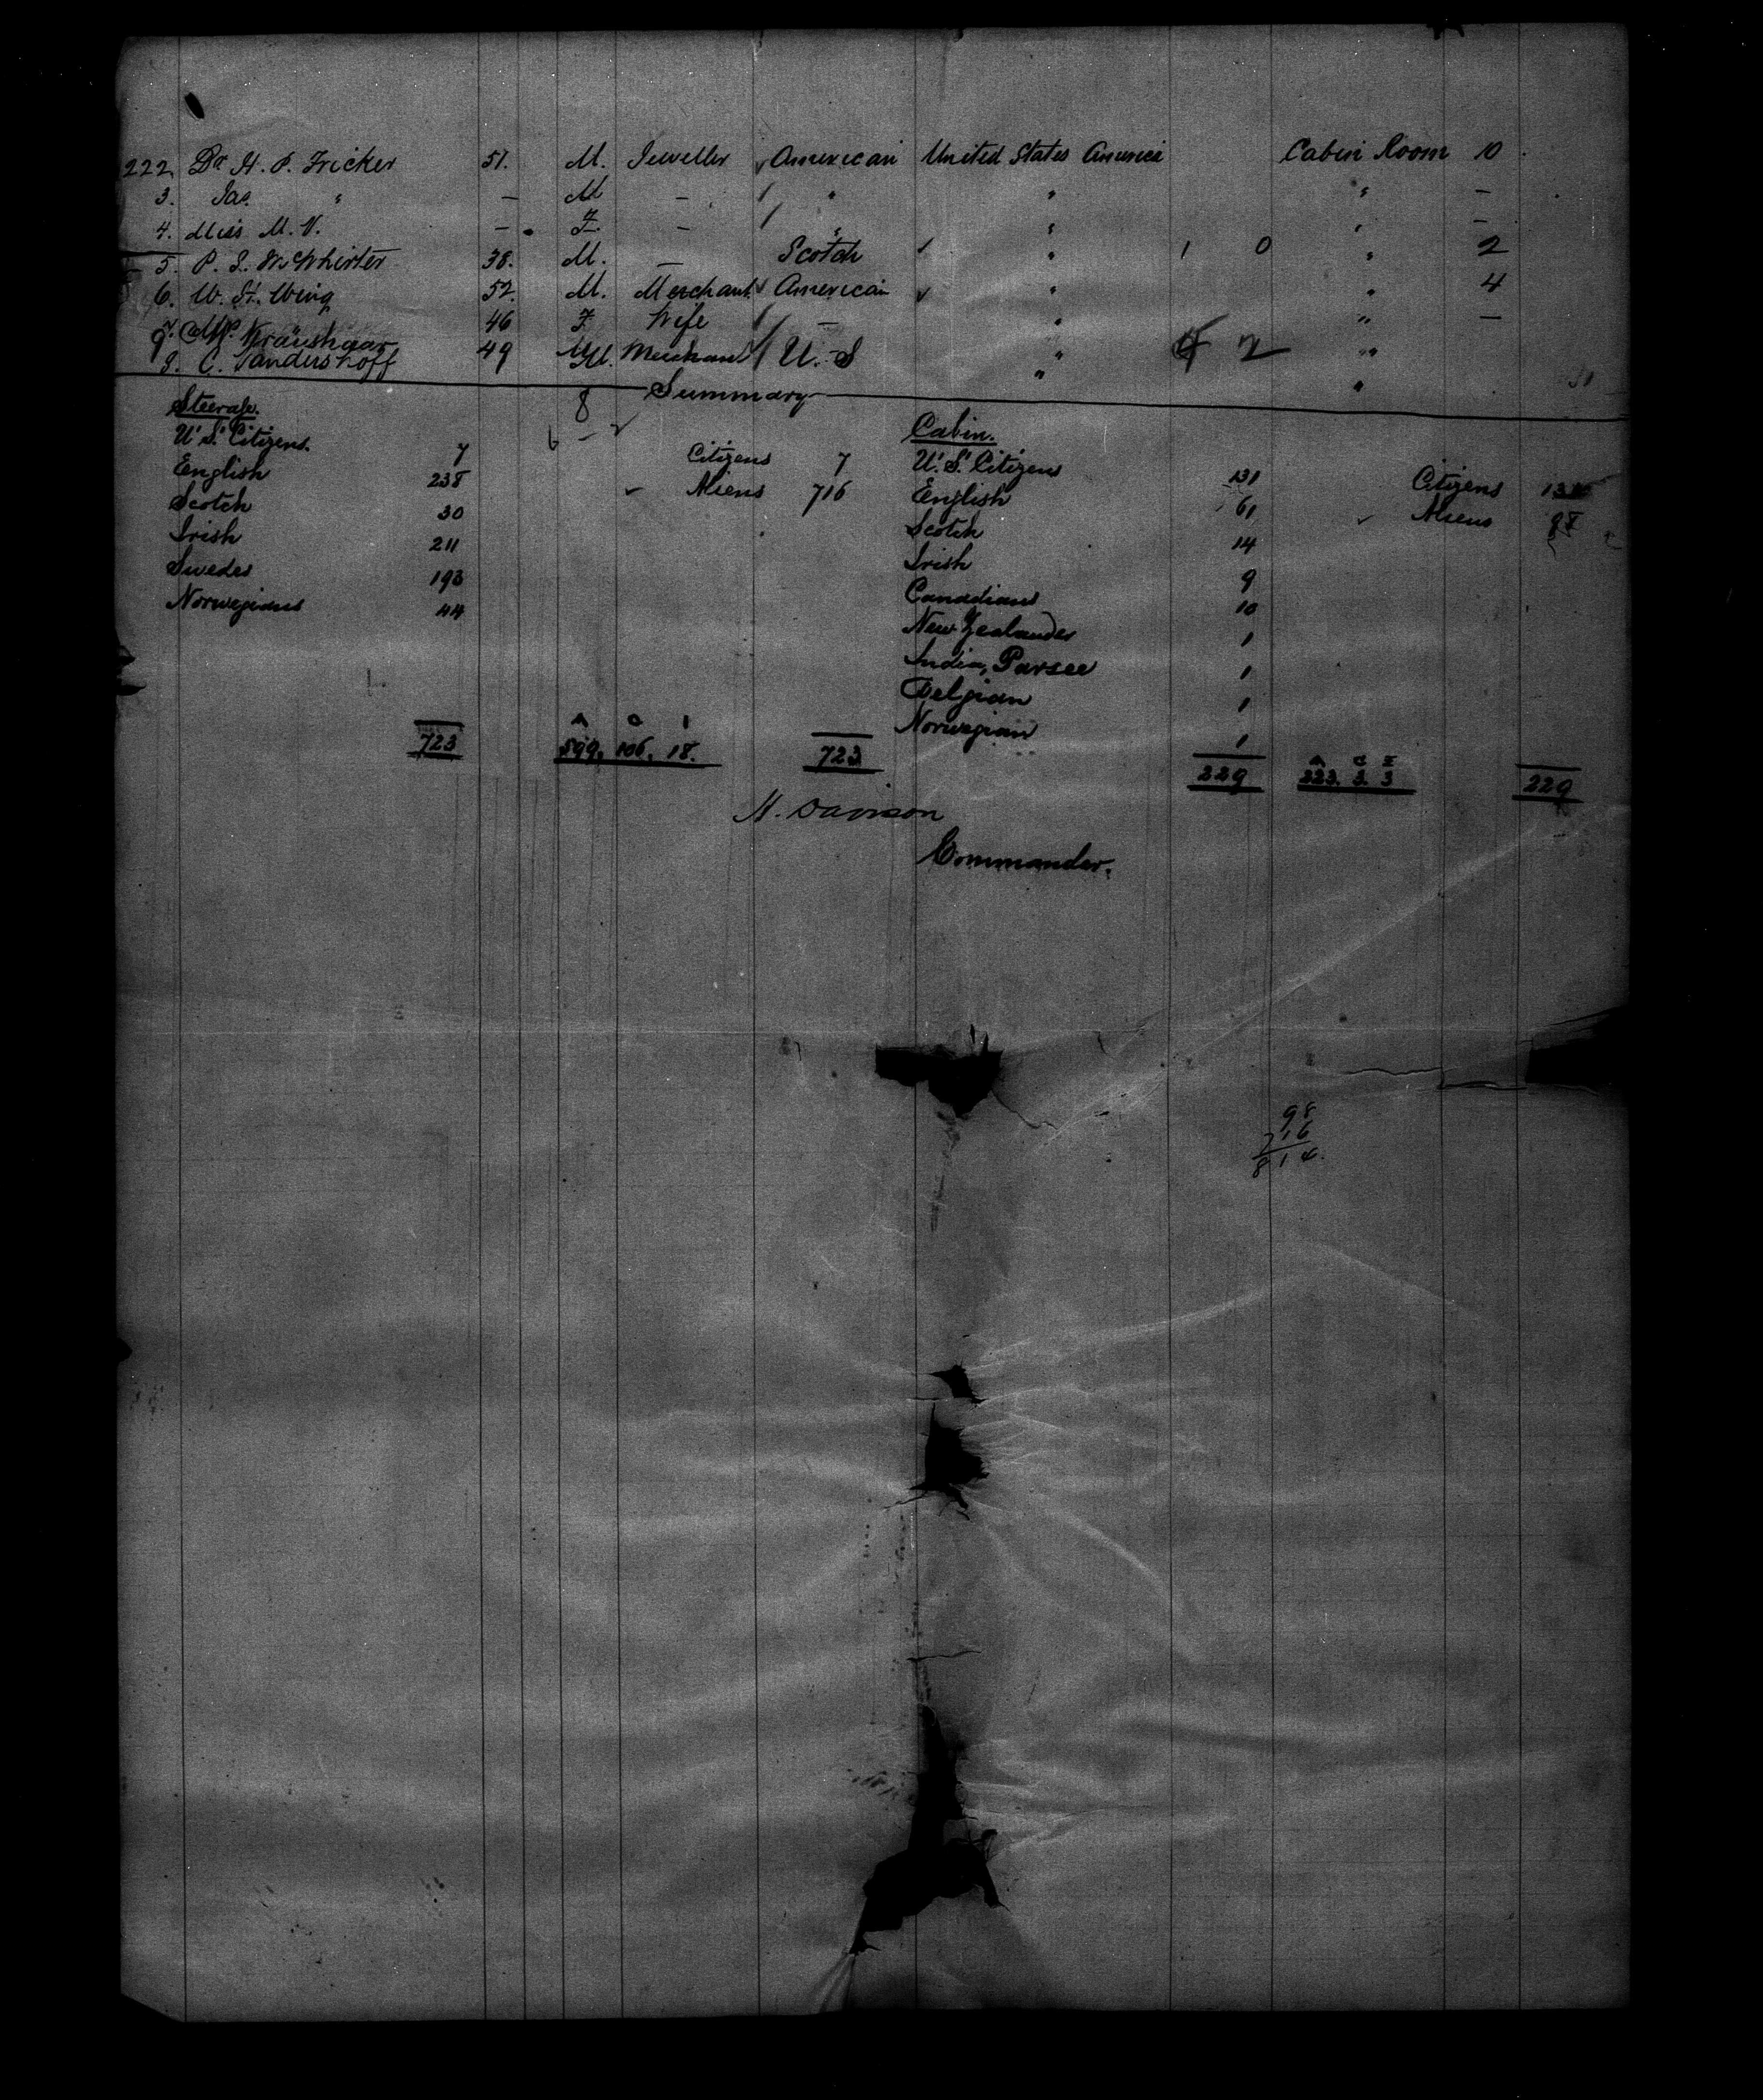 222. Dr. H. P. Fricker 51. M. Jeweller American United States America Cabin Room 10
3. Jas. " — M — " " " —
4. Miss M. V. — F. — " " " —
5. P. S. McWhirter 38. M. — Scotch " 1 0 " 2
6. W. H. Wing 52. M. Merchant American " " 4
7. 46 F. Wife — " " —
9. Kraushaar 49 M. Merchant U.S " 2 "
8. C. Sandershoff M. " "
8 Summary
6 - 2
Steerage. Cabin.
U.S. Citizens. 7 Citizens 7 U.S. Citizens 131 Citizens
English 238 Aliens 716 English 61 Aliens 98
Scotch 30 Scotch 14
Irish 211 Irish 9
Swedes 193 Canadians 10
Norwegians 44 New Zealander 1
India, Parsee 1
Belgian 1
Norwegian 1
A C I
723 599. 106. 18. 723 229 223. 3. 3 229
A C I
H. Davison
Commander.
98
716
814.